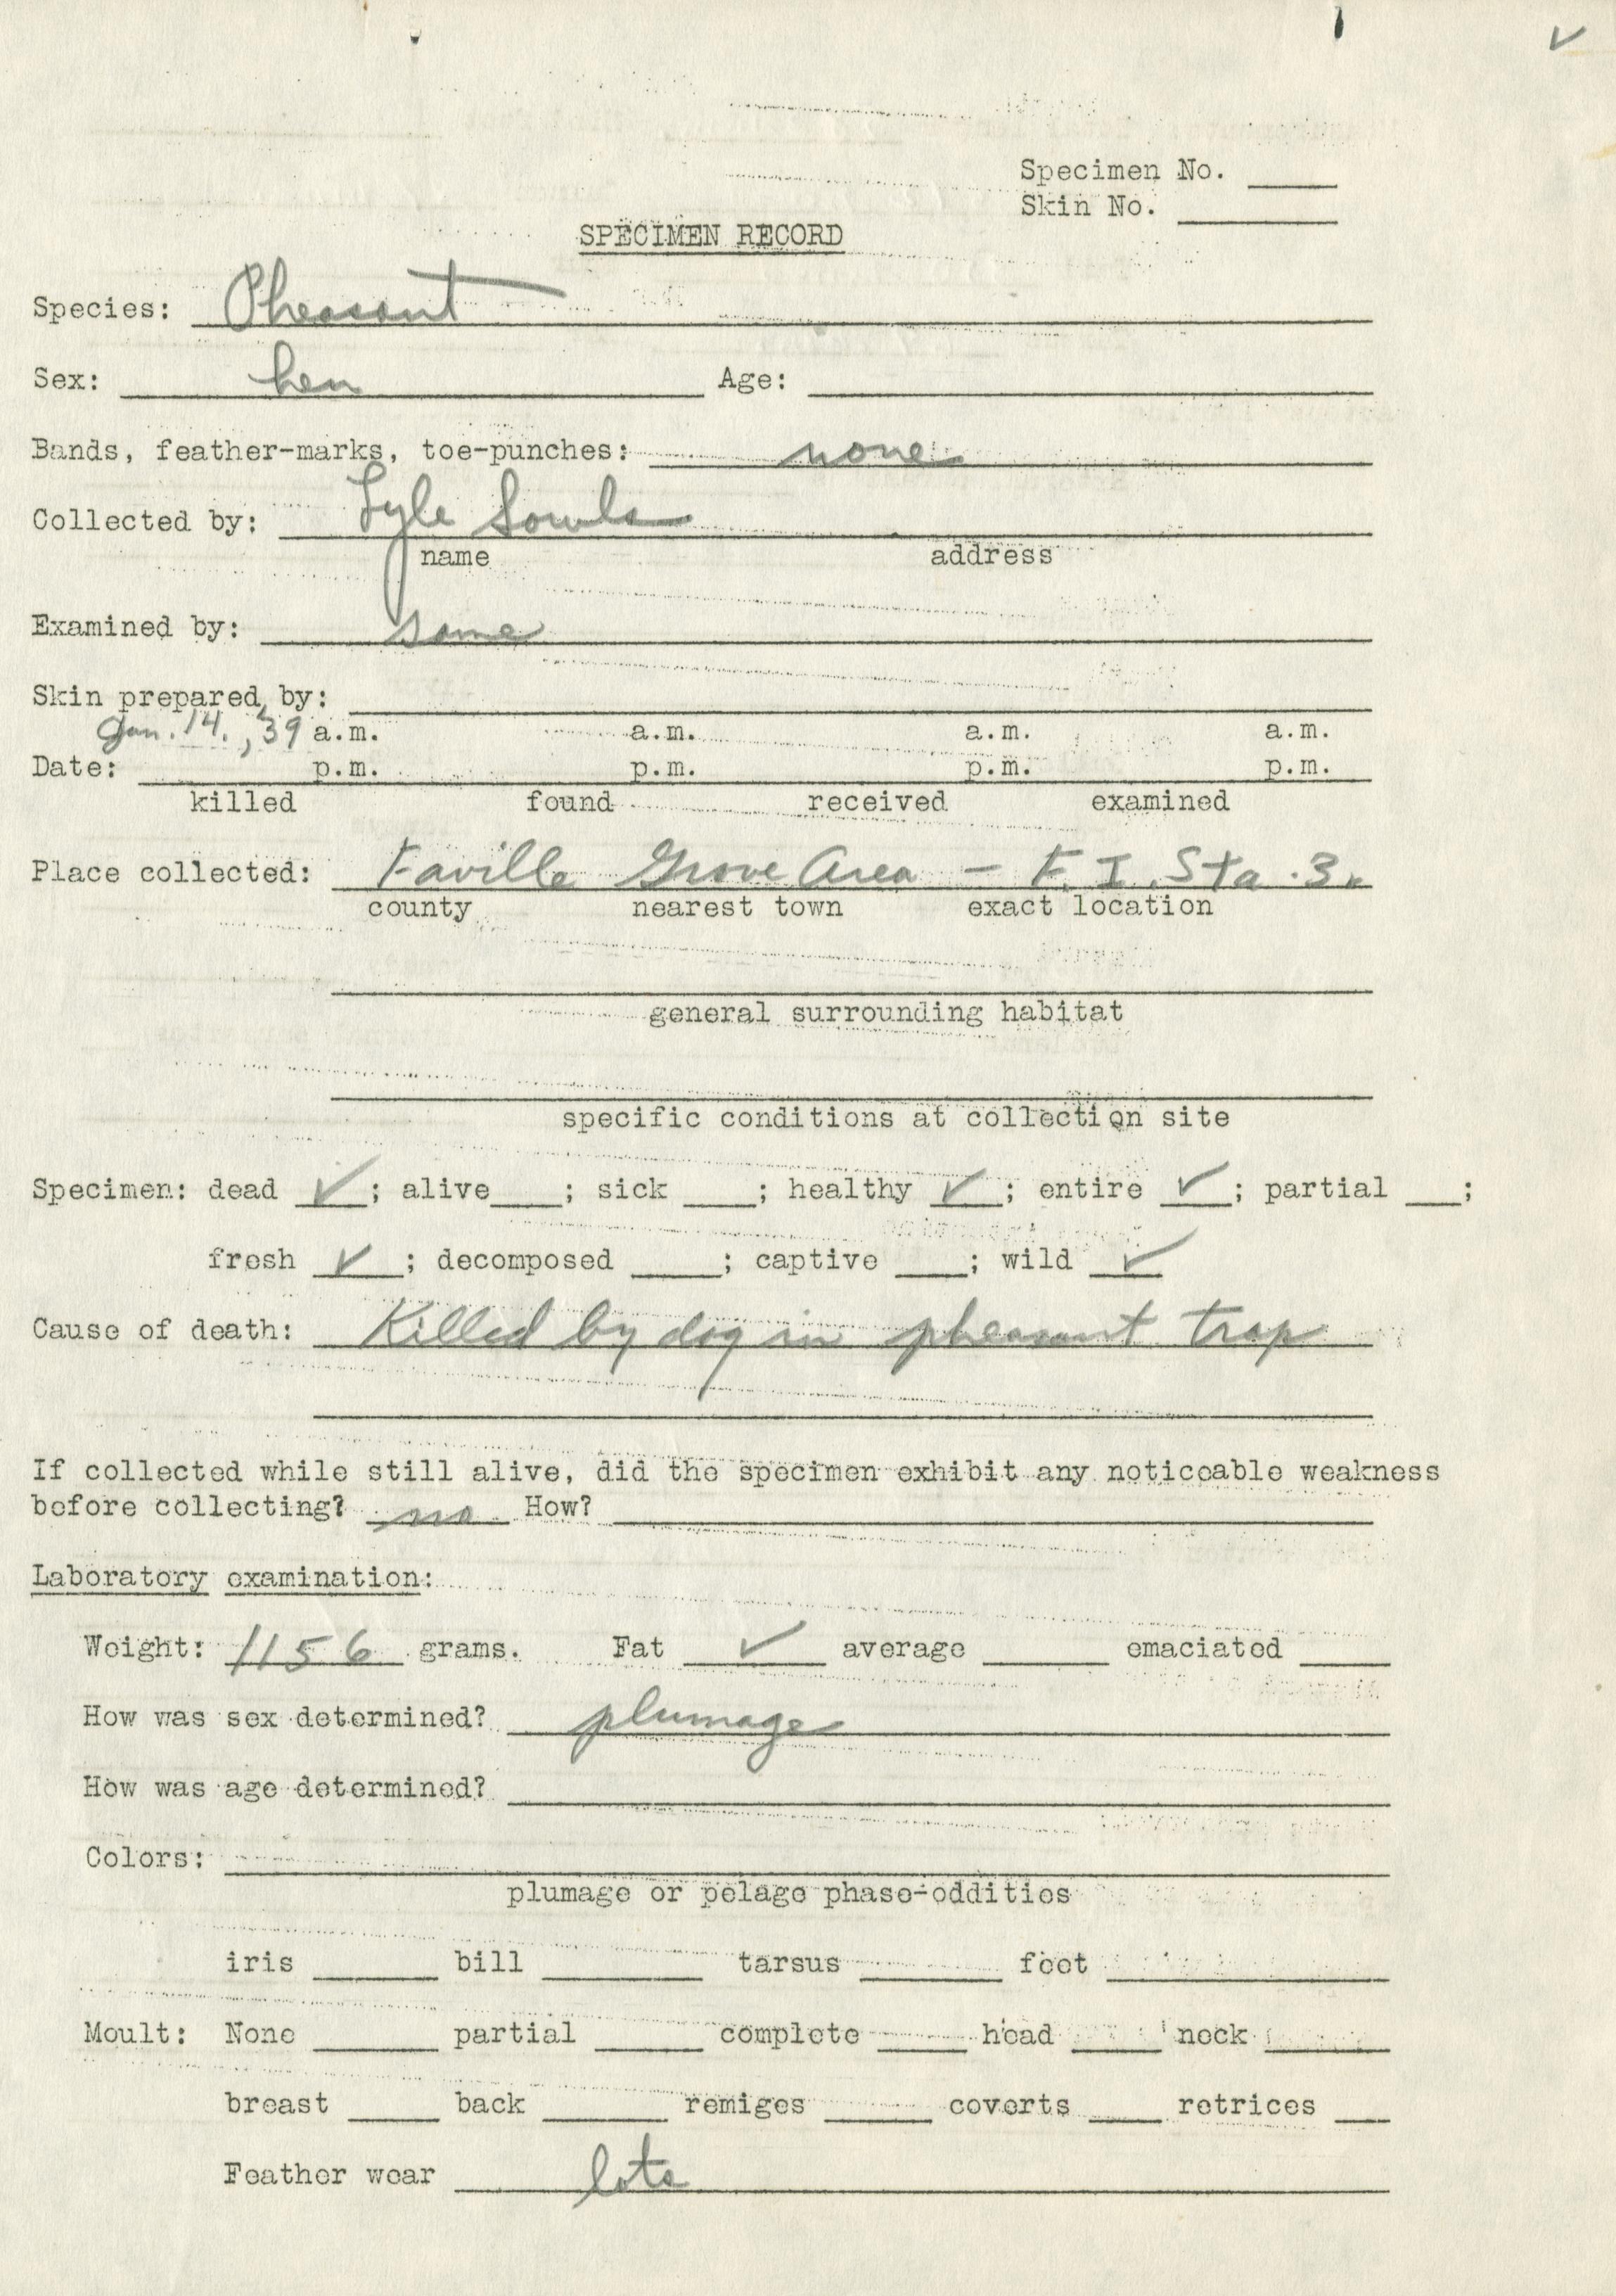 Specimen No. ____
Skin No. ____
SPECIMEN RECORD
Species: Pheasant
Sex: hen Age: ____
Bands, feather-marks, toe-punches: none
Collected by: Lyle Sowls
name address
Examined by: same
Skin prepared by: ____
Jan. 14, 39 a.m. a.m. a.m. a.m.
Date: ____ p.m. p.m. p.m. p.m.
killed found received examined
Place collected: Faville Grove Area - F. I. Sta. 3.
county nearest town exact location
general surrounding habitat
specific conditions at collection site
Specimen: dead ✓; alive ____; sick ____; healthy ✓; entire ✓; partial ____;
fresh ✓; decomposed ____; captive ____; wild ✓
Cause of death: Killed by dog in pheasant trap
If collected while still alive, did the specimen exhibit any noticeable weakness
before collecting? no How? ____
Laboratory examination:
Weight: 1156 grams. Fat ✓ average ____ emaciated ____
How was sex determined? plumage
How was age determined? ____
Colors: ____
plumage or pelage phase-oddities
iris ____ bill ____ tarsus ____ foot ____
Moult: None ____ partial ____ complete ____ head ____ neck ____
breast ____ back ____ remiges ____ coverts ____ retrices ____
Feather wear lots